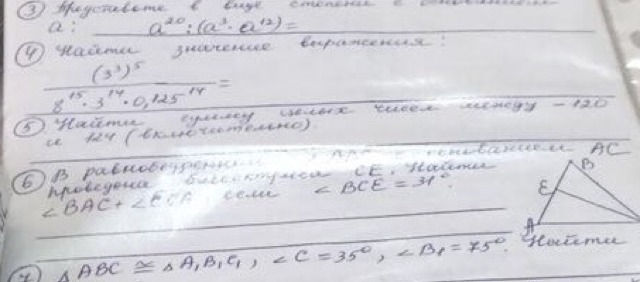 ③ Представьте в виде степени с основанием
a: a²⁰ : (a³ · a¹²) =
④ Найти значение выражения:
(3³)⁵
8¹⁵ · 3¹⁴ · 0,125¹⁴ =
⑤ Найти сумму целых чисел между -120
и 124 (включительно).
⑥ В равнобедренном основанием AC
проведена биссектриса CE. Найти
∠BAC + ∠ECA если ∠BCE = 31°.
B
E
A
7 △ABC ≅ △A₁B₁C₁, ∠C = 35°, ∠B₁ = 75°. Найти